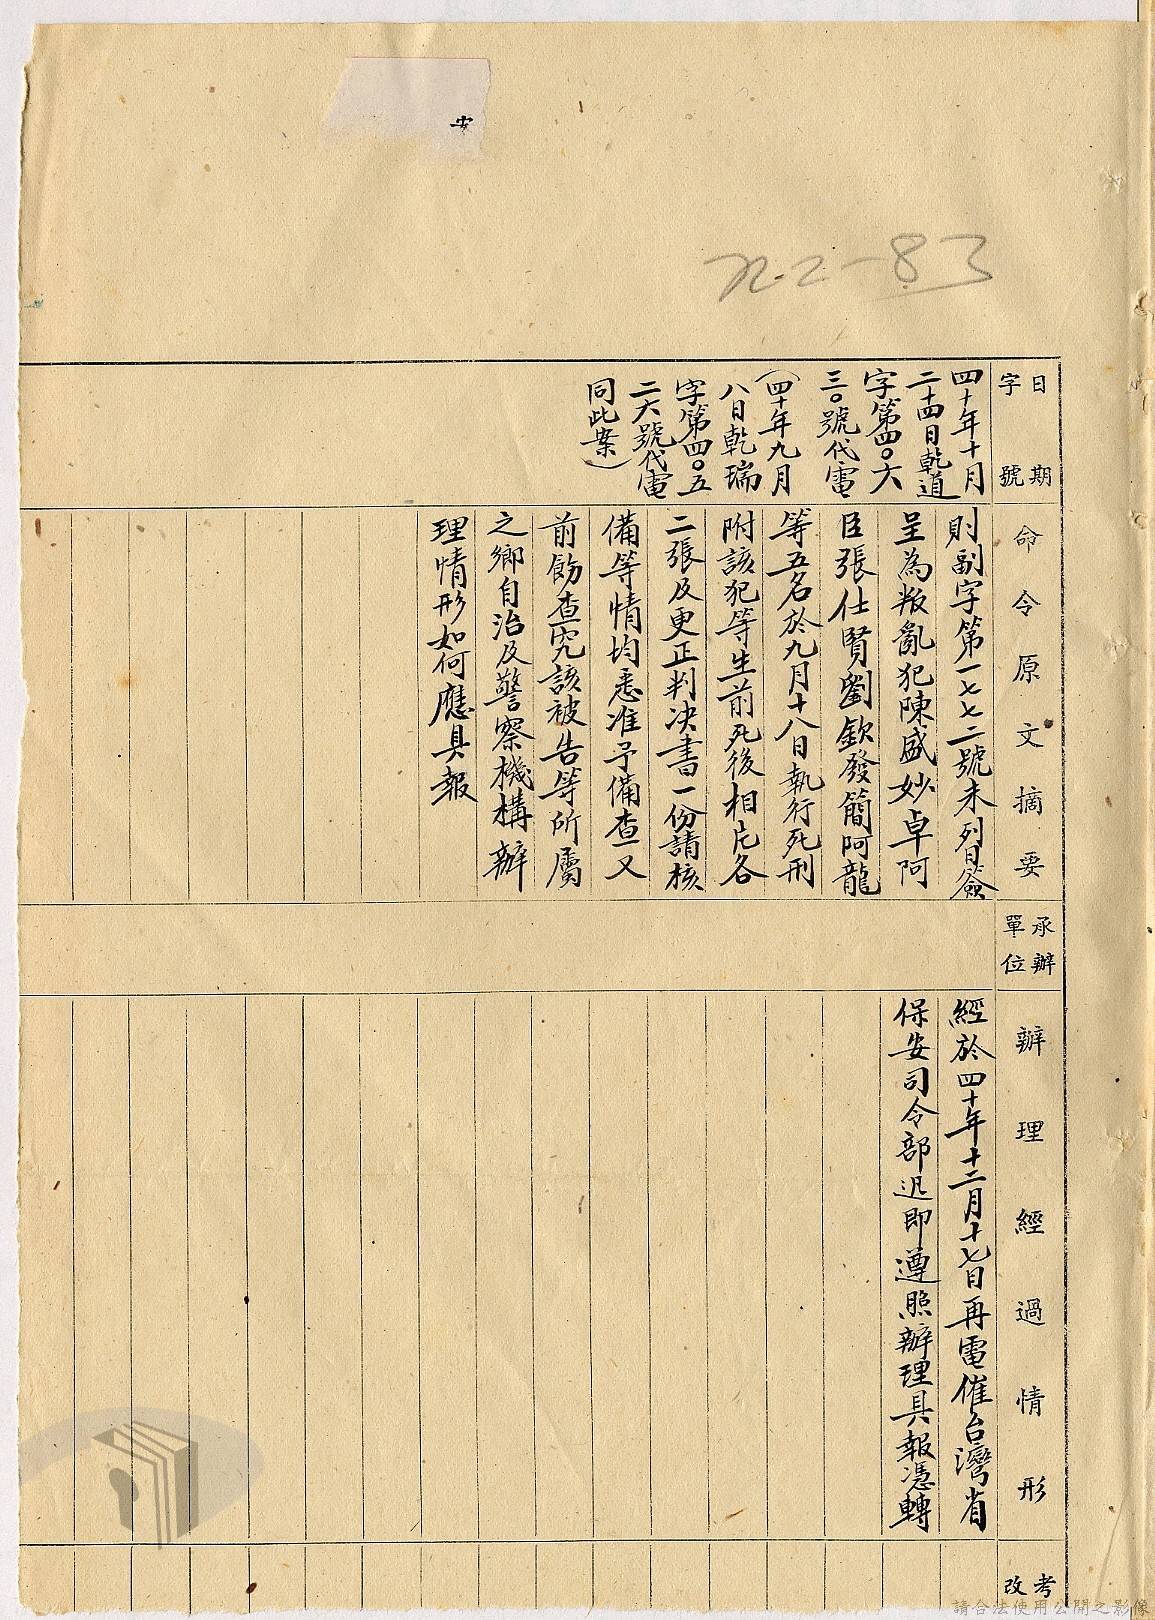 安
72-2-83
日期
字號
四十年十月
二十四日乾道
字第四〇六
三〇號代電
(四十年九月
八日乾瑞
字第四〇五
二六號代電
同此案)
命令原文摘要
則副字第一七七二號未列日簽
呈為叛亂犯陳盛妙卓阿
臣張仕賢劉欽發簡阿龍
等五名於九月十八日執行死刑
附該犯等生前死後相片各
二張及更正判決書一份請核
備等情均悉准予備查又
前飭查究該被告等所屬
之鄉自治及警察機構辦
理情形如何應具報
承辦
單位
辦理經過情形
經於四十年十二月十七日再電催台灣省
保安司令部迅即遵照辦理具報憑轉
考
改
請合法使用公開之影像